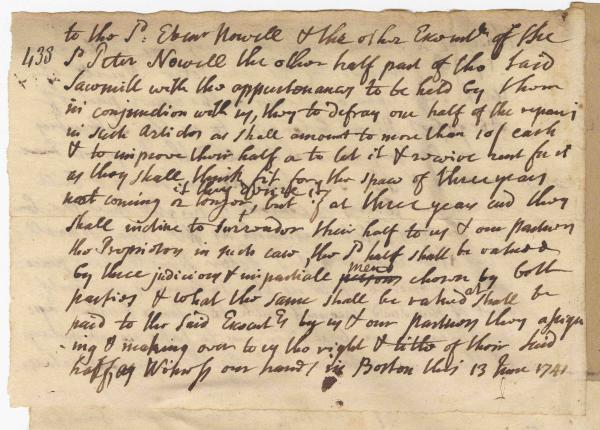 to the Sd. Ebenr Nowell & the other Executs. of the
438
Sd Peter Nowell the other half part of the said
Sawmill with the appurtenances to be held by them
in conjunction with us, they to defray one half of the repairs
in such Articles as shall amount to more than 10/ each
& to improve their half or to let it & receive rent for it
as they shall think fit for the space of three years
it they desire it,
next coming or longer, but if at three years end they
shall incline to surrender their half to us & our partners
the Proprietors in such case, the Sd half shall be valued
men
by three judicious & impartiale persons chosen by both
parties & what the same shall be valued at shall be
paid to the said Execut.rs by us & our partners they assign
ing & making over to us the right & title of their said
half, as Witness our hands in Boston this 13 June 1741